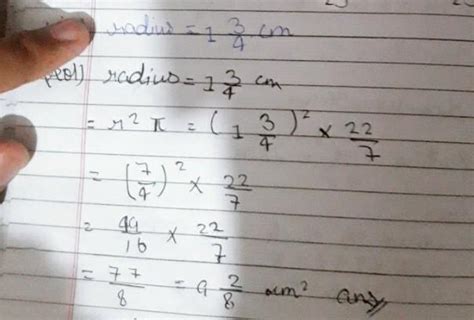 radius = 1 3/4 cm
radius = 1 3/4 cm
= r² π = (1 3/4)² × 22/7
= (7/4)² × 22/7
= 49/16 × 22/7
= 77/8 = 9 2/8 cm² ans